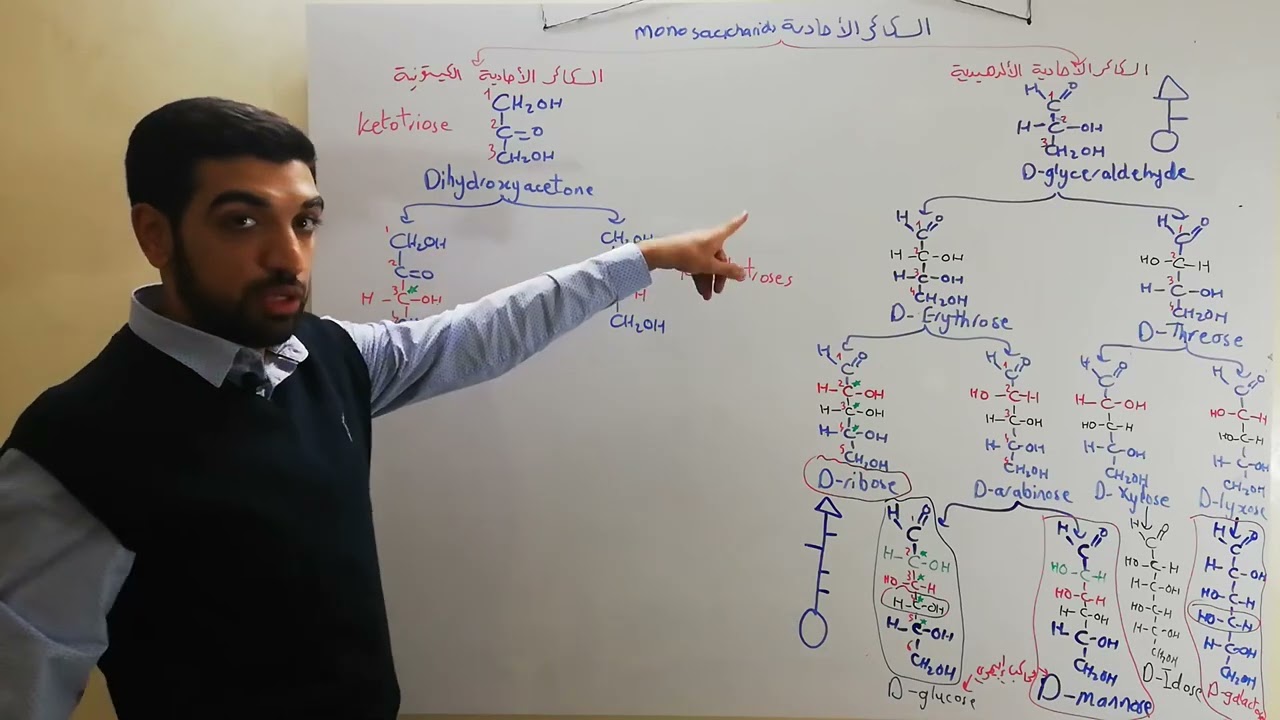 monosaccharids السكائر الأحادية
السكائر الأحادية الكيتونية
السكائر الأحادية الألدهيدية
ketotriose
1 CH₂OH
2 C=O
3 CH₂OH
Dihydroxyacetone
H 1 C O
H-C-OH 2
3 CH₂OH
D-glyceraldehyde
1 CH₂OH
2 C=O
H-3 C*-OH
CH₂OH
H
CH₂OH
H 1 C O
H-2 C-OH
H-3 C-OH
4 CH₂OH
D-Erythrose
H 1 C O
HO-2 C-H
H-3 C-OH
4 CH₂OH
D-Threose
H 1 C O
H-2 C*-OH
H-3 C*-OH
H-4 C*-OH
5 CH₂OH
D-ribose
H 1 C O
HO-2 C-H
H-3 C-OH
H-4 C-OH
5 CH₂OH
D-arabinose
H C O
H-C-OH
HO-C-H
H-C-OH
CH₂OH
D-xylose
H C O
HO-C-H
HO-C-H
H-C-OH
CH₂OH
D-lyxose
H 1 C O
H-2 C*-OH
HO-3 C*-H
H-4 C*-OH
H-5 C*-OH
6 CH₂OH
D-glucose
H C O
HO-C-H
HO-C-H
H-C-OH
H-C-OH
CH₂OH
D-mannose
H C O
HO-C-H
H-C-OH
HO-C-H
H-C-OH
CH₂OH
D-Idose
H C O
H-C-OH
HO-C-H
HO-C-H
H-C-OH
CH₂OH